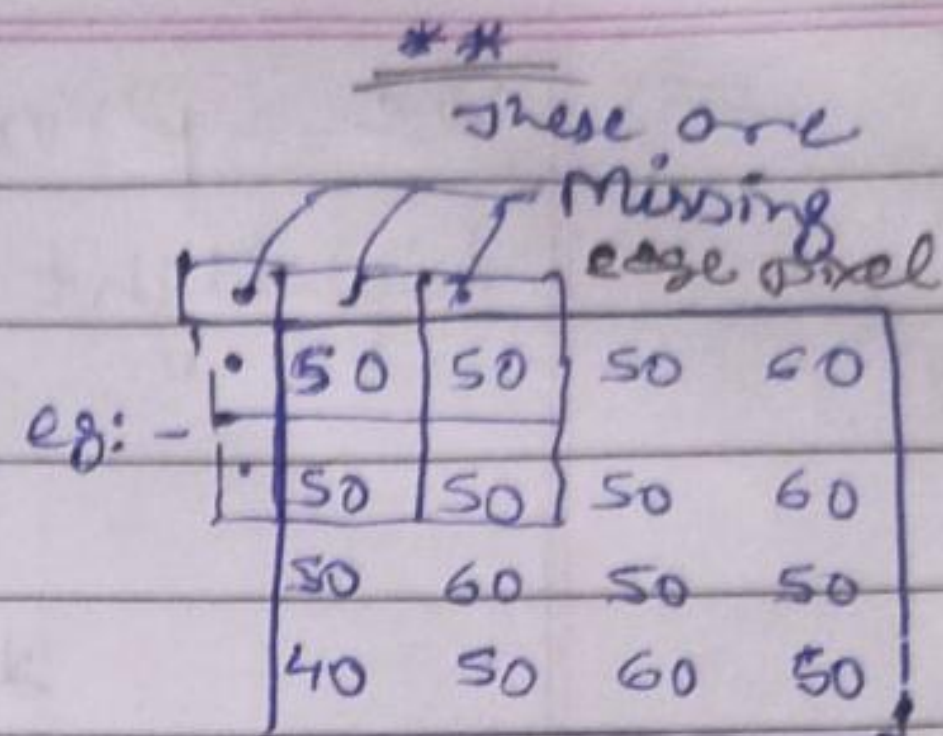 **
These are
Missing
edge pixel
50 50 50 60
eg: -
50 50 50 60
50 60 50 50
40 50 60 50